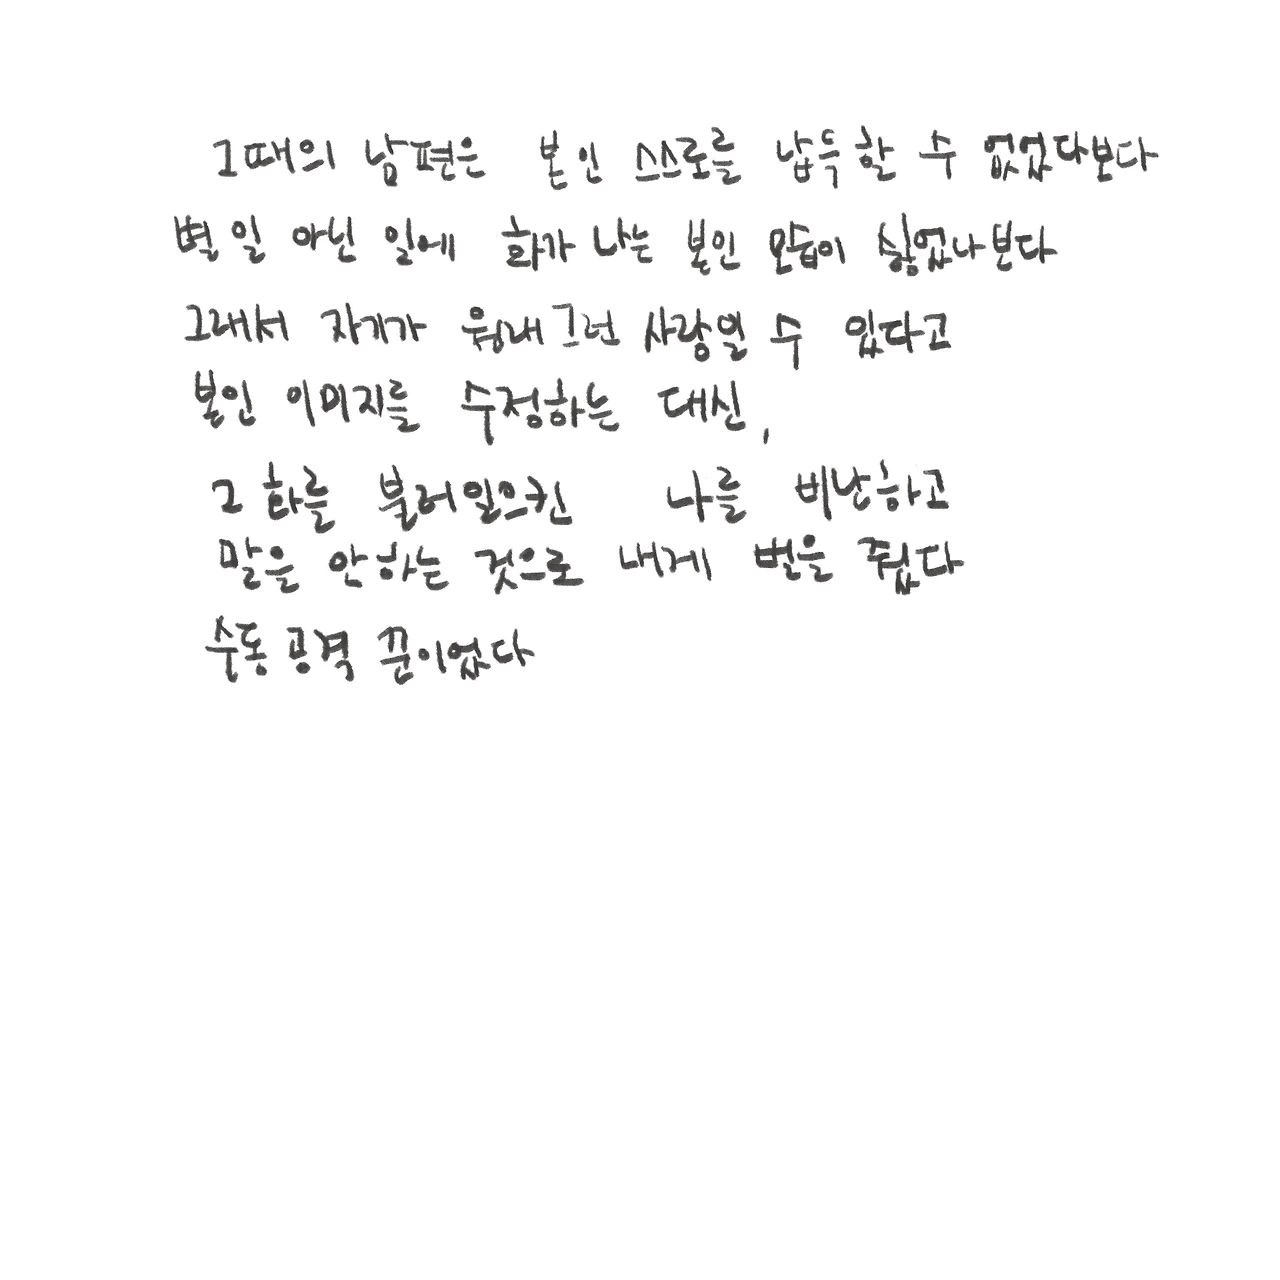 그때의 남편은 본인 스스로를 납득할 수 없었다보다
별 일 아닌 일에 화가 나는 본인 모습이 싫었나본다
그래서 자기가 원래 그런 사람일 수 있다고
본인 이미지를 수정하는 대신,
그 화를 불러일으킨 나를 비난하고
말을 안하는 것으로 내게 벌을 줬다
수동 공격 꾼이었다